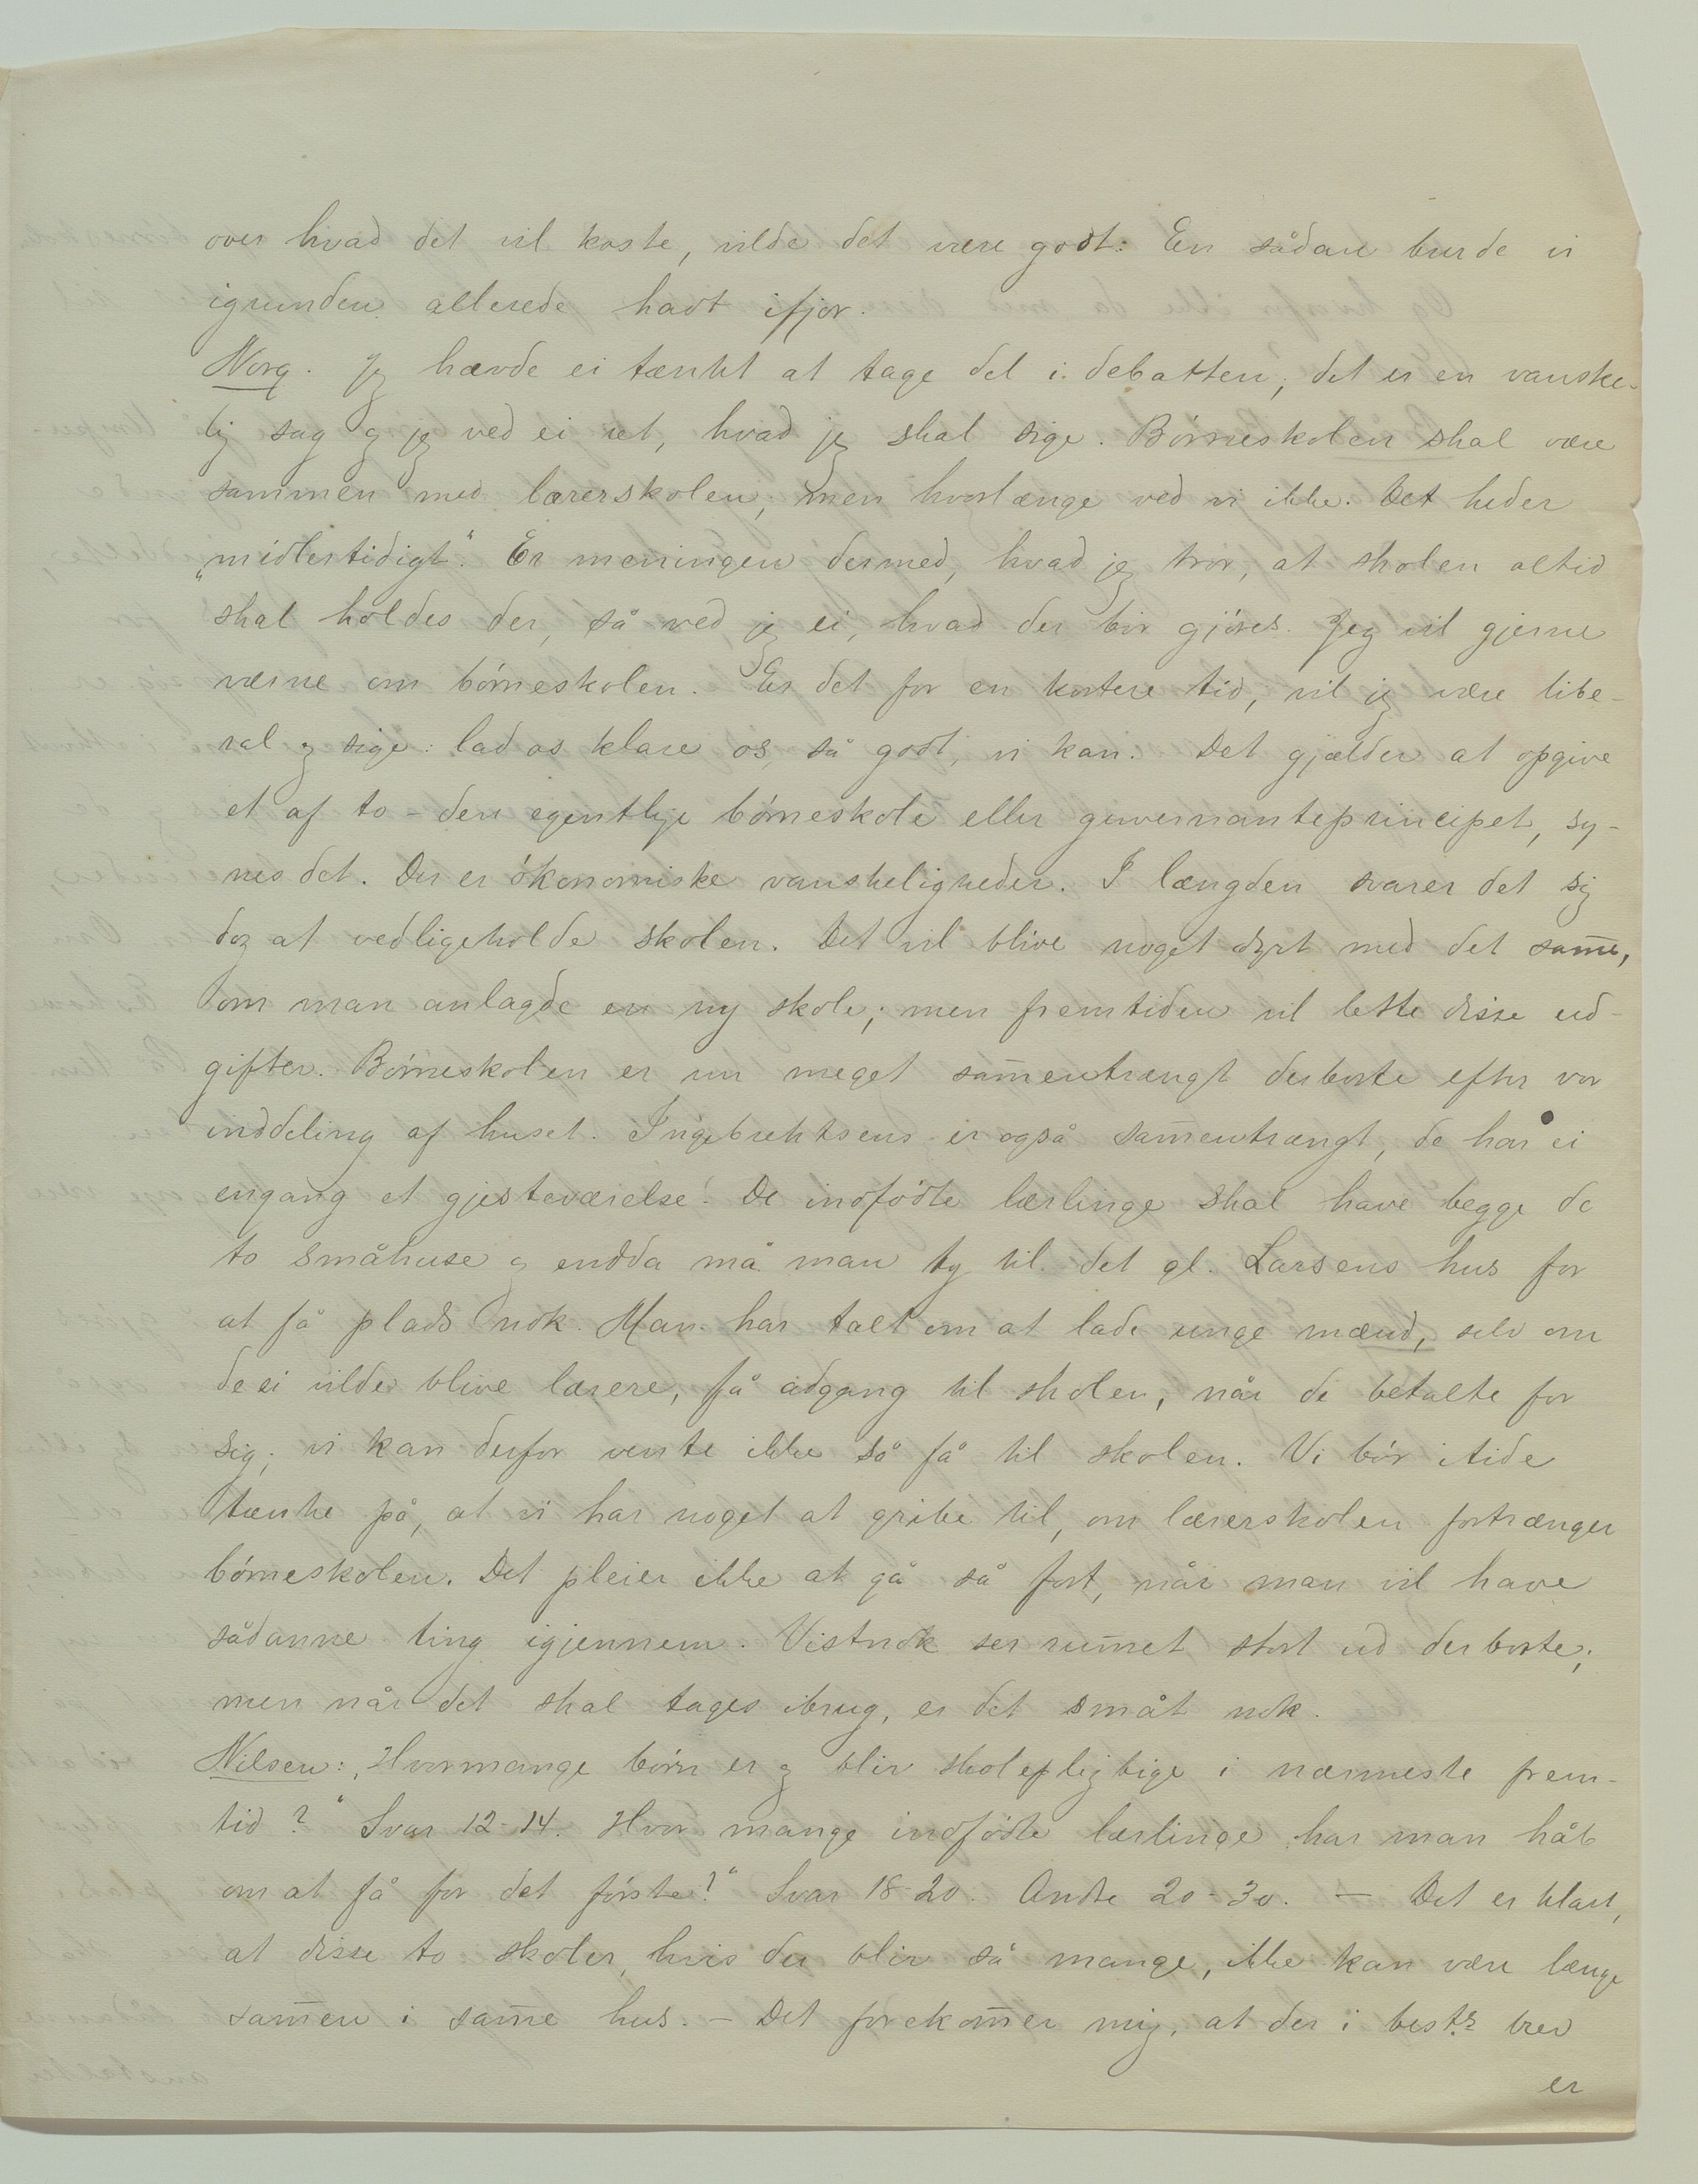 over hvad det vil koste, vilde det være godt: En sådan burde vi
igrunden allerede havt ifjor.
Norg. Jeg havde ei tænkt at tage del i debatten; det er en vanske-
lig sag og jeg ved ei ret, hvad jeg skal sige. Børneskolen skal være
sammen med lærerskolen; men hvorlænge ved vi ikke. Det heder
„midlertidigt". Er meningen dermed, hvad jeg tror, at skolen altid
skal holdes der, så ved jeg ei, hvad der bør gjøres. Jeg vil gjerne
værne om børneskolen. Er det for en kortere tid, vil jeg være libe-
ral og sige: lad os klare os, så godt, vi kan. Det gjælder at opgive
et af to - den egentlige børneskole eller guvernanteprincipet, sy-
nes det. Der er økonomiske vanskeligheder. I længden svarer det sig
dog at vedligeholde skolen. Det vil blive noget dyrt med det same,
om man anlagde en ny skole; men fremtiden vil lette disse ud-
gifter. Børneskolen er nu meget samentrængt derborte efter vor
inddeling af huset. Ingebrektsens er også samentrængt, de har ei
engang et gjesteværelse. De indfødte lærlinge skal have begge de
to småhuse og endda må man ty til det gl. Larsens hus for
at få plads nok. Man har talt om at lade unge mænd, selv om
de ei vilde blive lærere, få adgang til skolen, når de betalte for
sig; vi kan derfor vente ikke så få til skolen. Vi bør itide
tænke på, at vi har noget at gribe til, om lærerskolen fortrænger
børneskolen. Det pleier ikke at gå så fort, når man vil have
sådanne ting igjennem. Vistnok ser rumet stort ud derborte;
men når det skal tages ibrug, er det småt nok.
Nilsen: „Hvormange børn er og blir skolepligtige i nærmeste frem-
tid?" Svar 12-14. Hvor mange indfødte lærlinge har man håb
om at få for det første?" Svar 18-20. Andre 20-30. — Det er klart,
at disse to skoler, hvis der blir så mange, ikke kan være længe
samen i same hus. - Det forekomer mig, at der i best.s brev
er